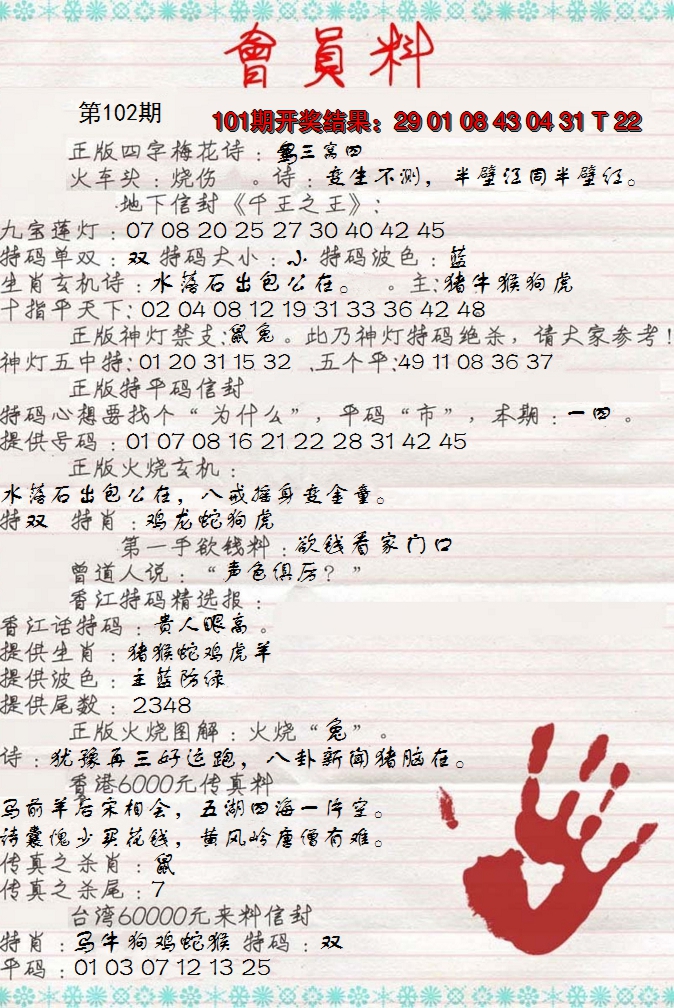 會員料
第102期
101期开奖结果：29 01 08 43 04 31 T 22
正版四字梅花诗：三窝四
火车头：烧伤 。诗：变生不测，半壁江同半壁红。
地下信封《千王之王》：
九宝莲灯：07 08 20 25 27 30 40 42 45
特码单双：双 特码大小：小 特码波色：蓝
生肖玄机诗：水落石出包公在。 。主:猪牛猴狗虎
十指平天下: 02 04 08 12 19 31 33 36 42 48
正版神灯禁支:鼠兔。此乃神灯特码绝杀，请大家参考!
神灯五中特: 01 20 31 15 32 、五个平:49 11 08 36 37
正版特平码信封
特码心想要找个“为什么”，平码“市”，本期：一四。
提供号码：01 07 08 16 21 22 28 31 42 45
正版火烧玄机：
水落石出包公在，八戒摇身变金童。
特双 特肖：鸡龙蛇狗虎
第一手欲钱料：欲钱看家门口
曾道人说：“声色俱厉？”
香江特码精选报：
香江话特码：贵人眼高。
提供生肖：猪猴蛇鸡虎羊
提供波色：主蓝防绿
提供尾数：2348
正版火烧图解：火烧“兔”。
诗：犹豫再三好运跑，八卦新闻猪脑在。
香港6000元传真料
马前羊后宋相会，五湖四海一阵空。
诗囊愧少买花钱，黄风岭唐僧有难。
传真之杀肖：鼠
传真之杀尾：7
台湾60000元来料信封
特肖：马牛狗鸡蛇猴 特码：双
平码：01 03 07 12 13 25